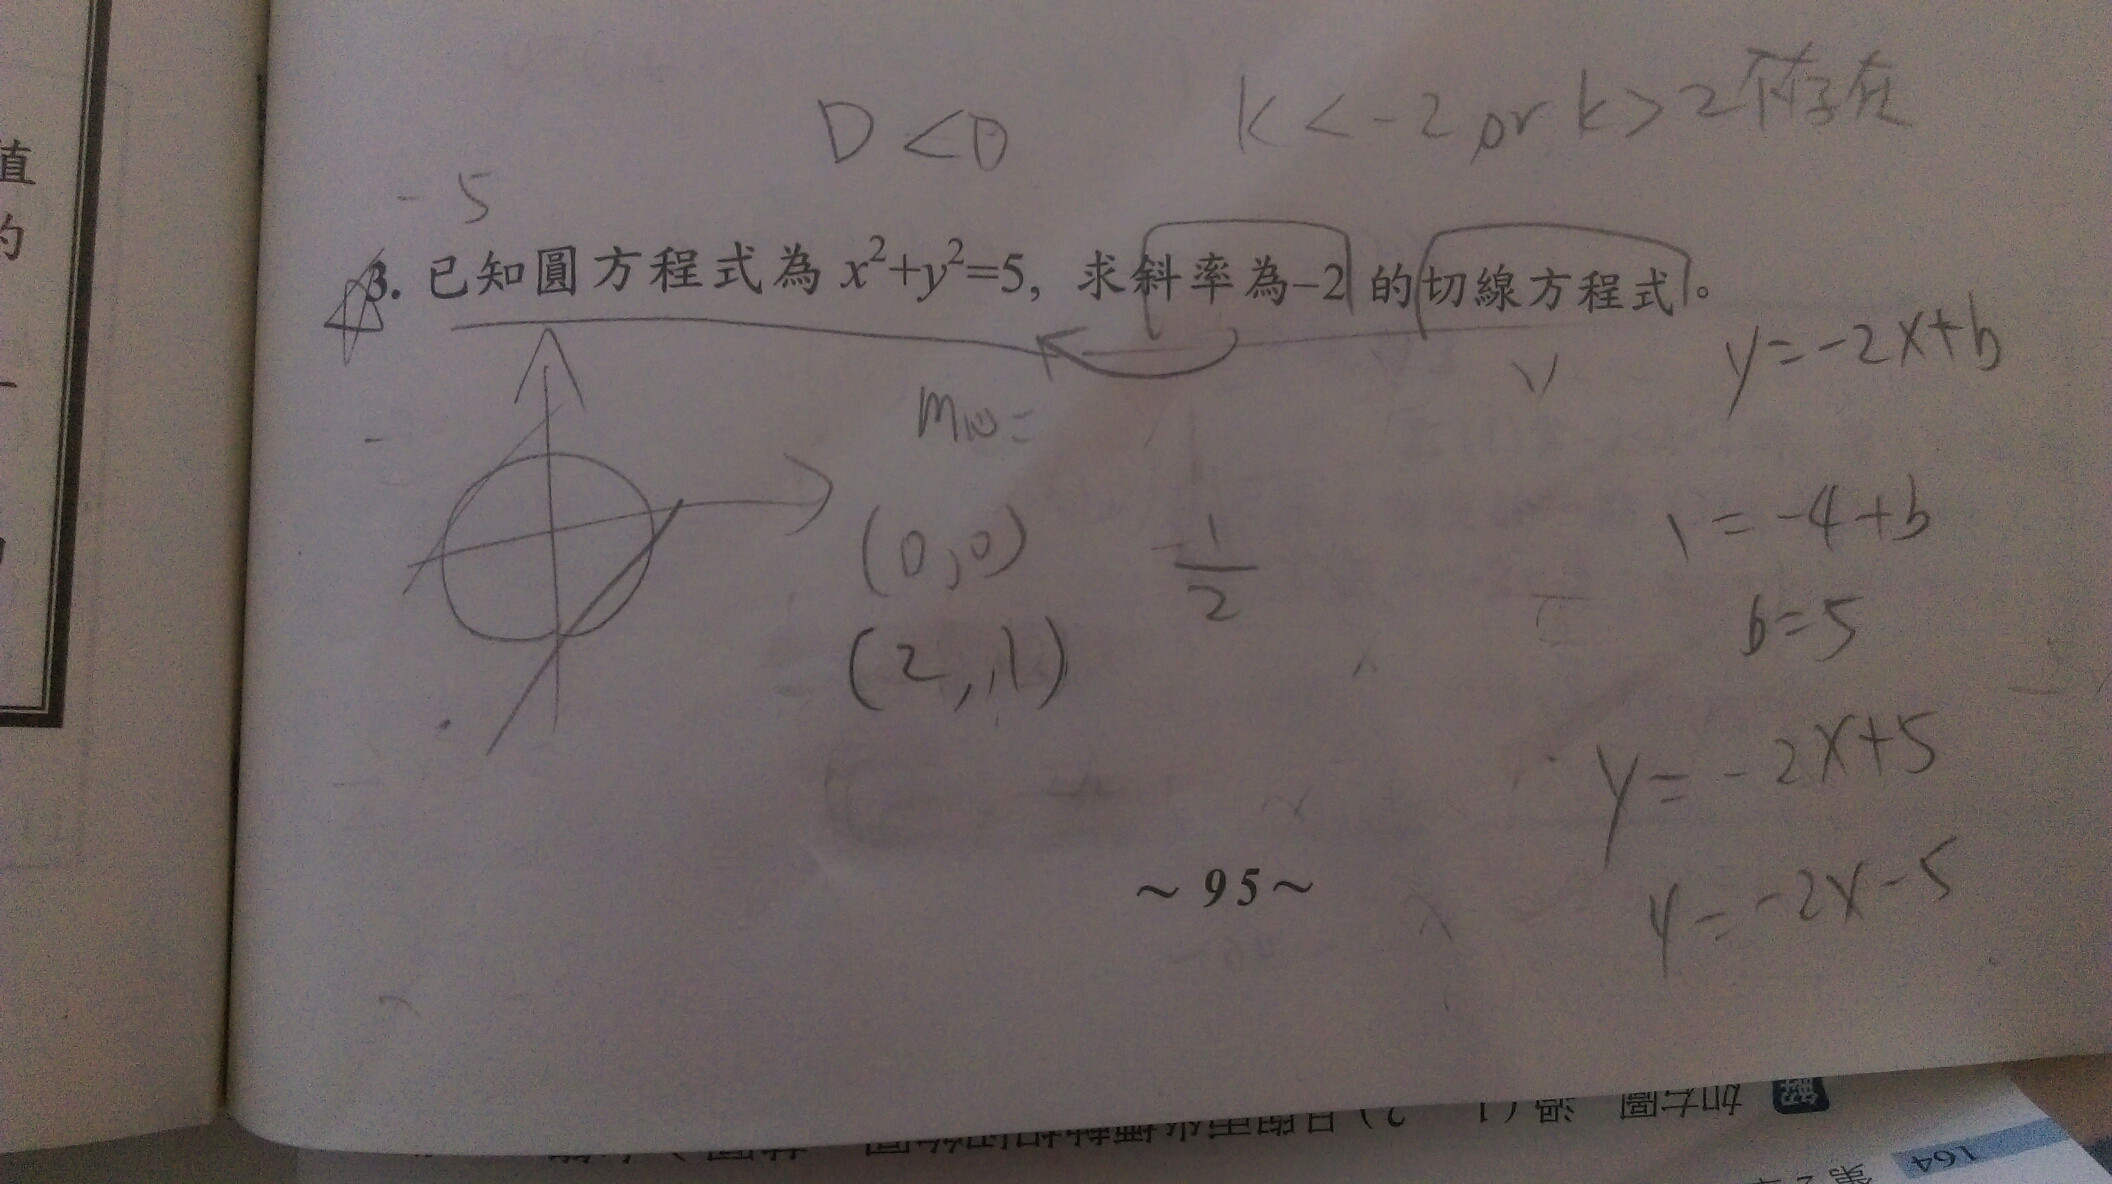 D<0
k<-2 or k>2 不存在
-5
3. 已知圓方程式為 x²+y²=5, 求斜率為-2 的切線方程式。
y=-2x+b
(0,0)
1/2
1=-4+b
(2,1)
b=5
y=-2x+5
y=-2x-5
~ 95 ~
值
的
解
如左圖
164